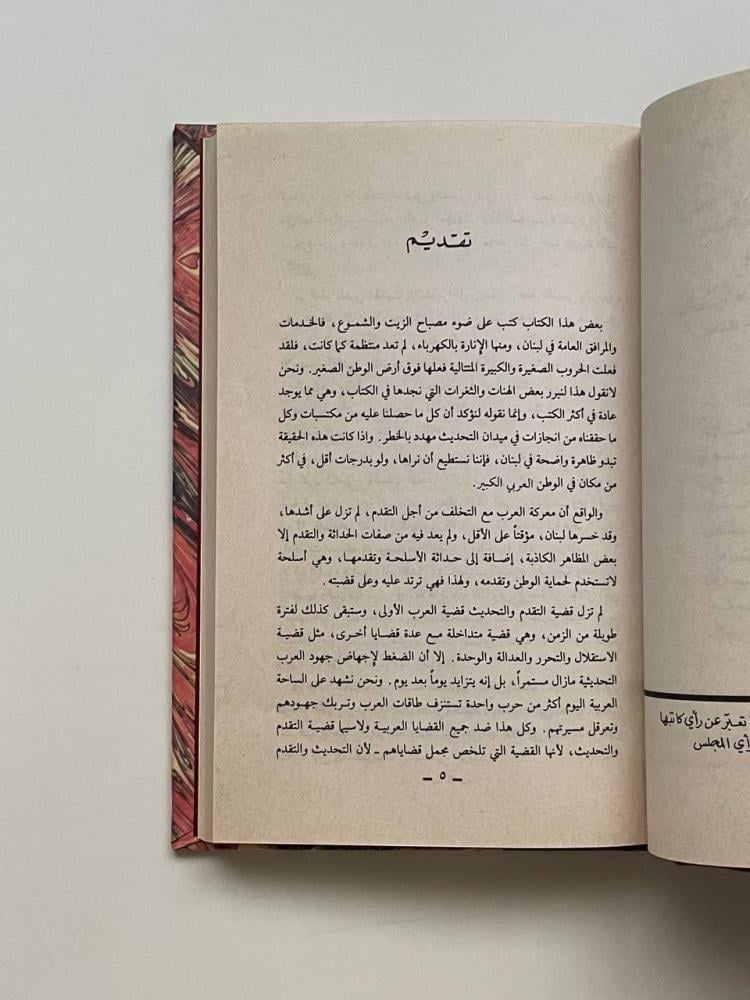 تقديم
بعض هذا الكتاب كتب على ضوء مصباح الزيت والشموع، فالخدمات
والمرافق العامة في لبنان، ومنها الإنارة بالكهرباء، لم تعد منتظمة كما كانت، فلقد
فعلت الحروب الصغيرة والكبيرة المتتالية فعلها فوق أرض الوطن الصغير. ونحن
لانقول هذا لنبرر بعض الهنات والثغرات التي نجدها في الكتاب، وهي مما يوجد
عادة في أكثر الكتب، وإنما نقوله لنؤكد أن كل ما حصلنا عليه من مكتسبات وكل
ما حققناه من انجازات في ميدان التحديث مهدد بالخطر. واذا كانت هذه الحقيقة
تبدو ظاهرة واضحة في لبنان، فإننا نستطيع أن نراها، ولو بدرجات أقل، في أكثر
من مكان في الوطن العربي الكبير.
والواقع أن معركة العرب مع التخلف من أجل التقدم، لم تزل على أشدها،
وقد خسرها لبنان، مؤقتاً على الأقل، ولم يعد فيه من صفات الحداثة والتقدم إلا
بعض المظاهر الكاذبة، إضافة إلى حداثة الأسلحة وتقدمها، وهي أسلحة
لاتستخدم لحماية الوطن وتقدمه، ولهذا فهي ترتد عليه وعلى قضيته.
لم تزل قضية التقدم والتحديث قضية العرب الأولى، وستبقى كذلك لفترة
طويلة من الزمن، وهي قضية متداخلة مع عدة قضايا أخرى، مثل قضية
الاستقلال والتحرر والعدالة والوحدة. إلا أن الضغط لإجهاض جهود العرب
التحديثية مازال مستمراً، بل إنه يتزايد يوماً بعد يوم. ونحن نشهد على الساحة
العربية اليوم أكثر من حرب واحدة تستنزف طاقات العرب وتربك جهودهم
وتعرقل مسيرتهم. وكل هذا ضد جميع القضايا العربية ولاسيما قضية التقدم
والتحديث، لأنها القضية التي تلخص مجمل قضاياهم ـ لأن التحديث والتقدم
ـ ٥ ـ
تعبّر عن رأي كاتبها
رأي المجلس